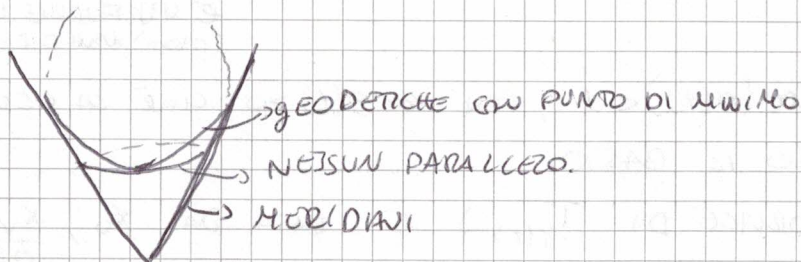 gEODETICHE CON PUNTO DI MINIMO
NESSUN PARALLELO.
MERIDIANI